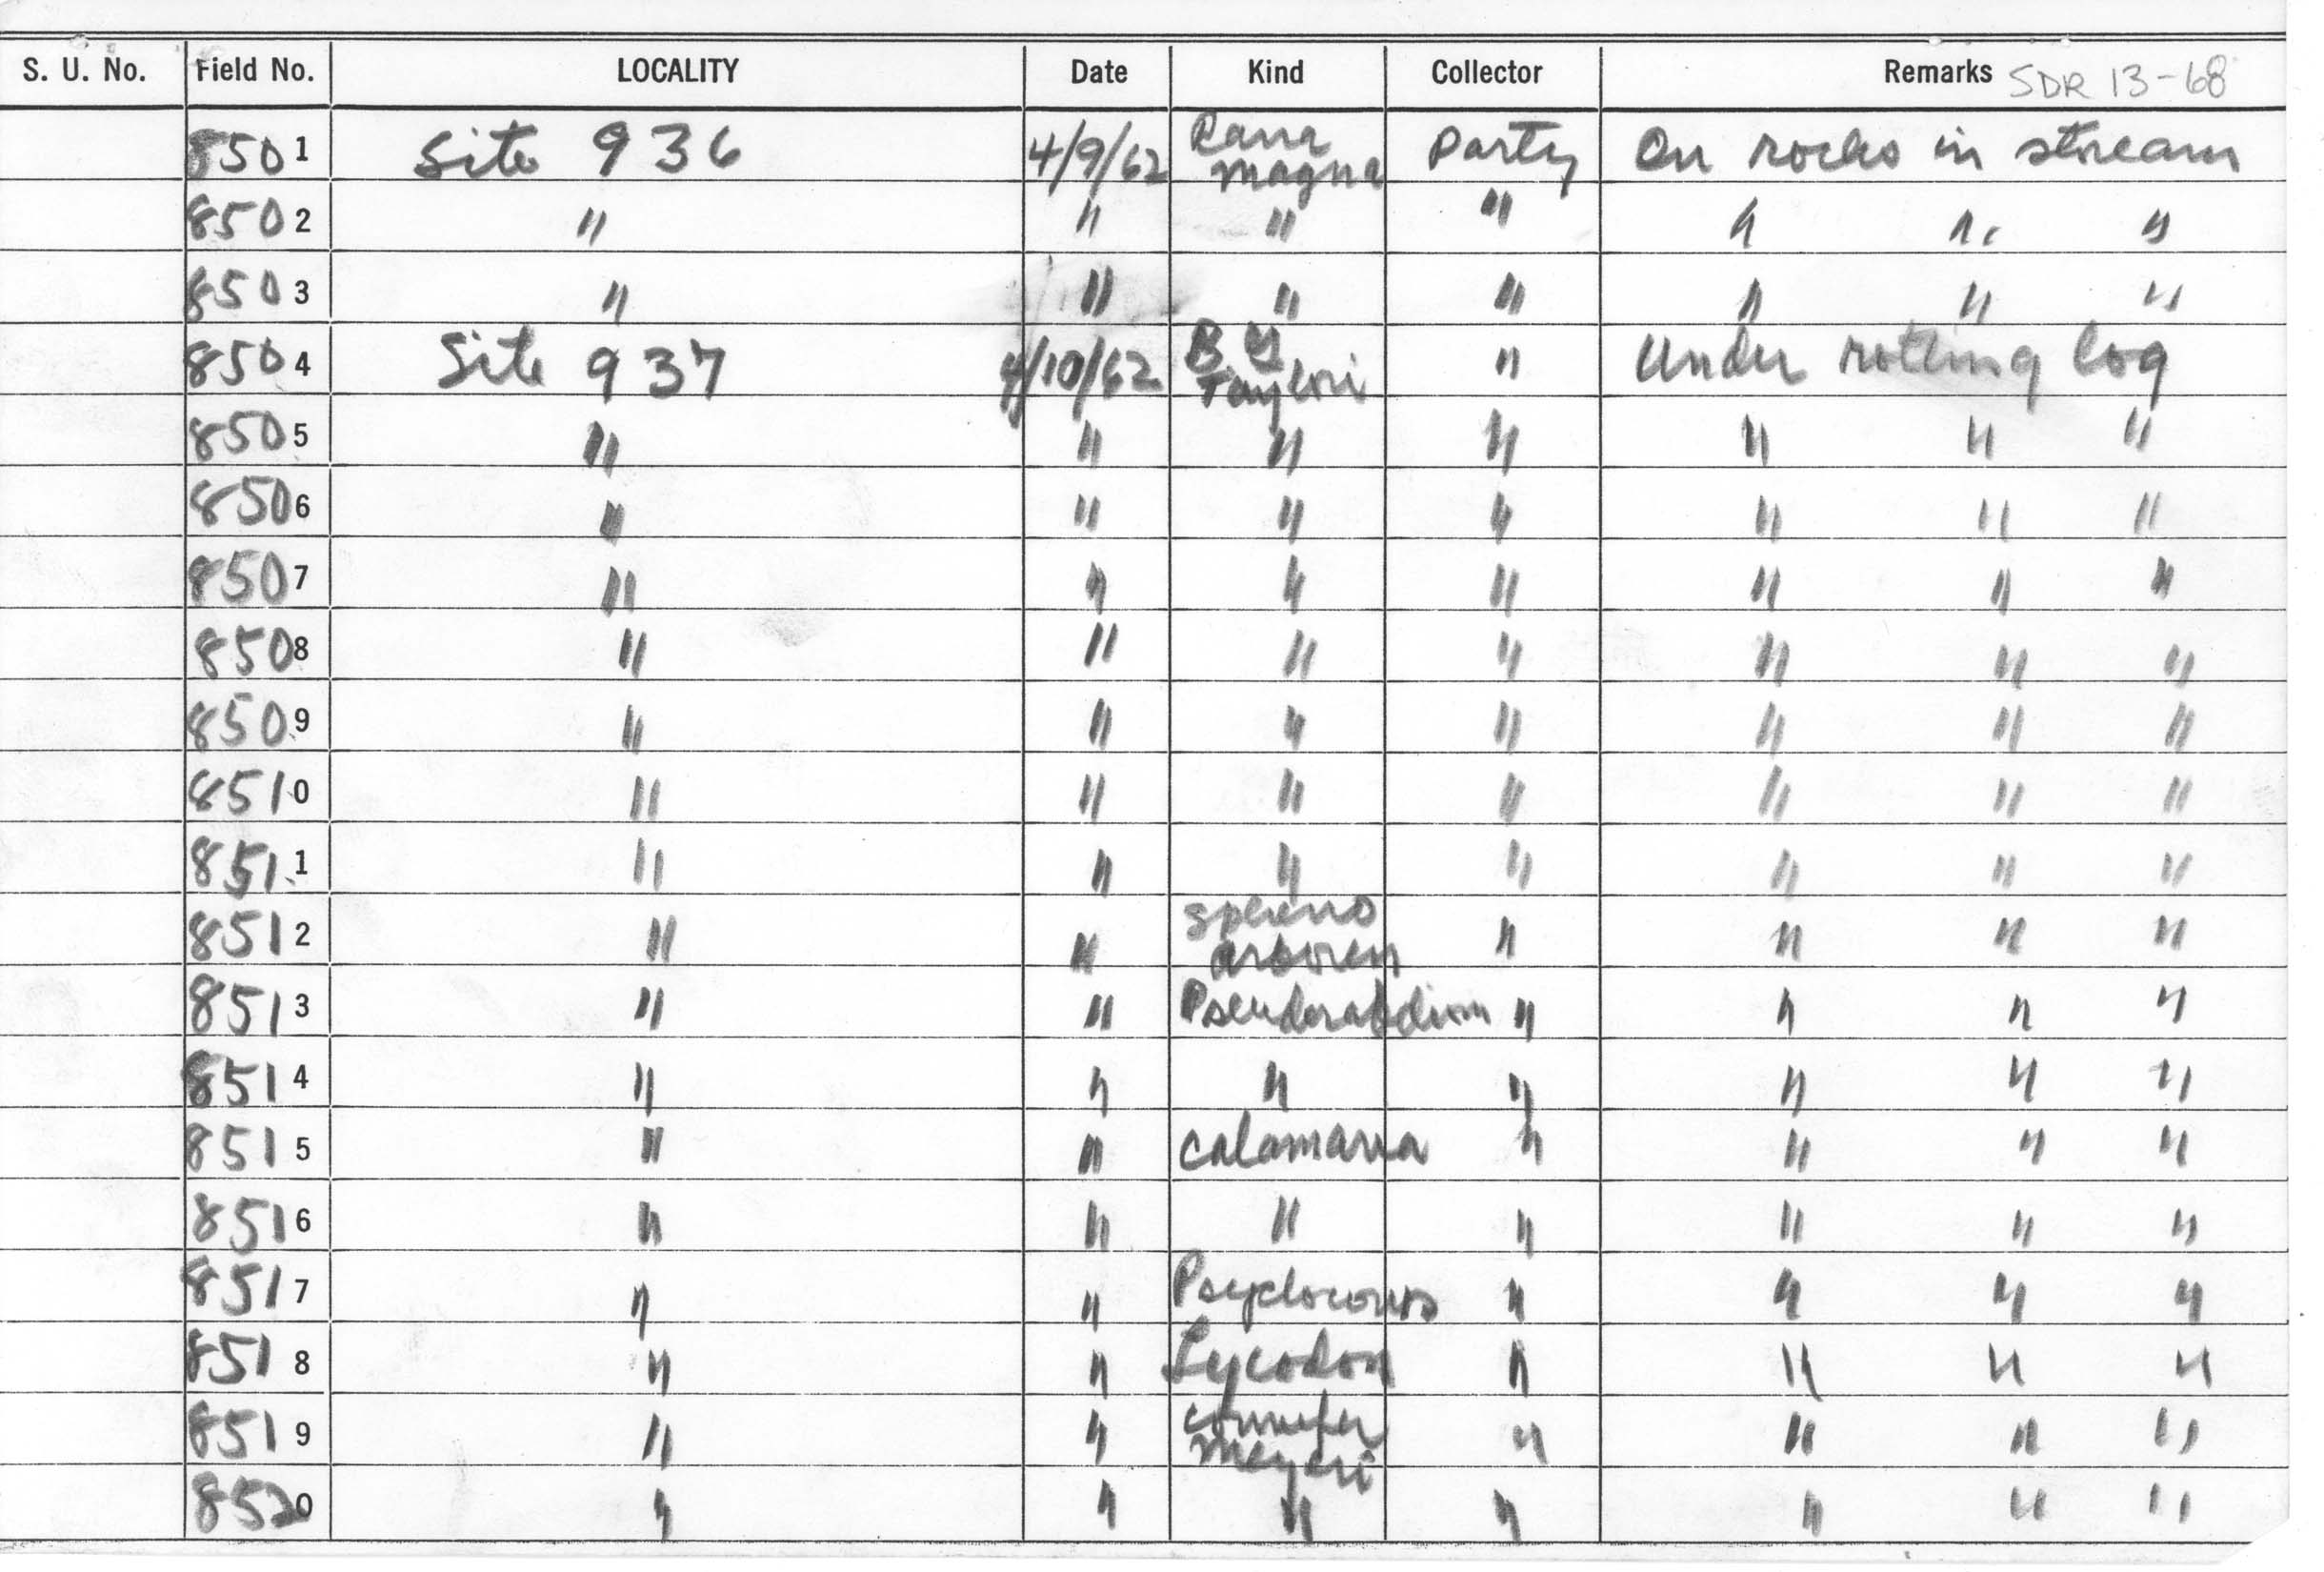 S. U. No. Field No. LOCALITY Date Kind Collector Remarks SDR 13-68
8501 Site 936 4/9/62 Rana magna Party On rocks in stream
8502 " " " " " " "
8503 " " " " " " "
8504 Site 937 4/10/62 B. Taylori " Under rotting log
8505 " " " " " " "
8506 " " " " " " "
8507 " " " " " " "
8508 " " " " " " "
8509 " " " " " " "
8510 " " " " " " "
8511 " " " " " " "
8512 " " Spheno arboren " " " "
8513 " " Pseudorabdium " " " "
8514 " " " " " " "
8515 " " Calamaria " " " "
8516 " " " " " " "
8517 " " " " " "
8518 " " Lycodon " " " "
8519 " " meyeri " " " "
8520 " " " " " " "